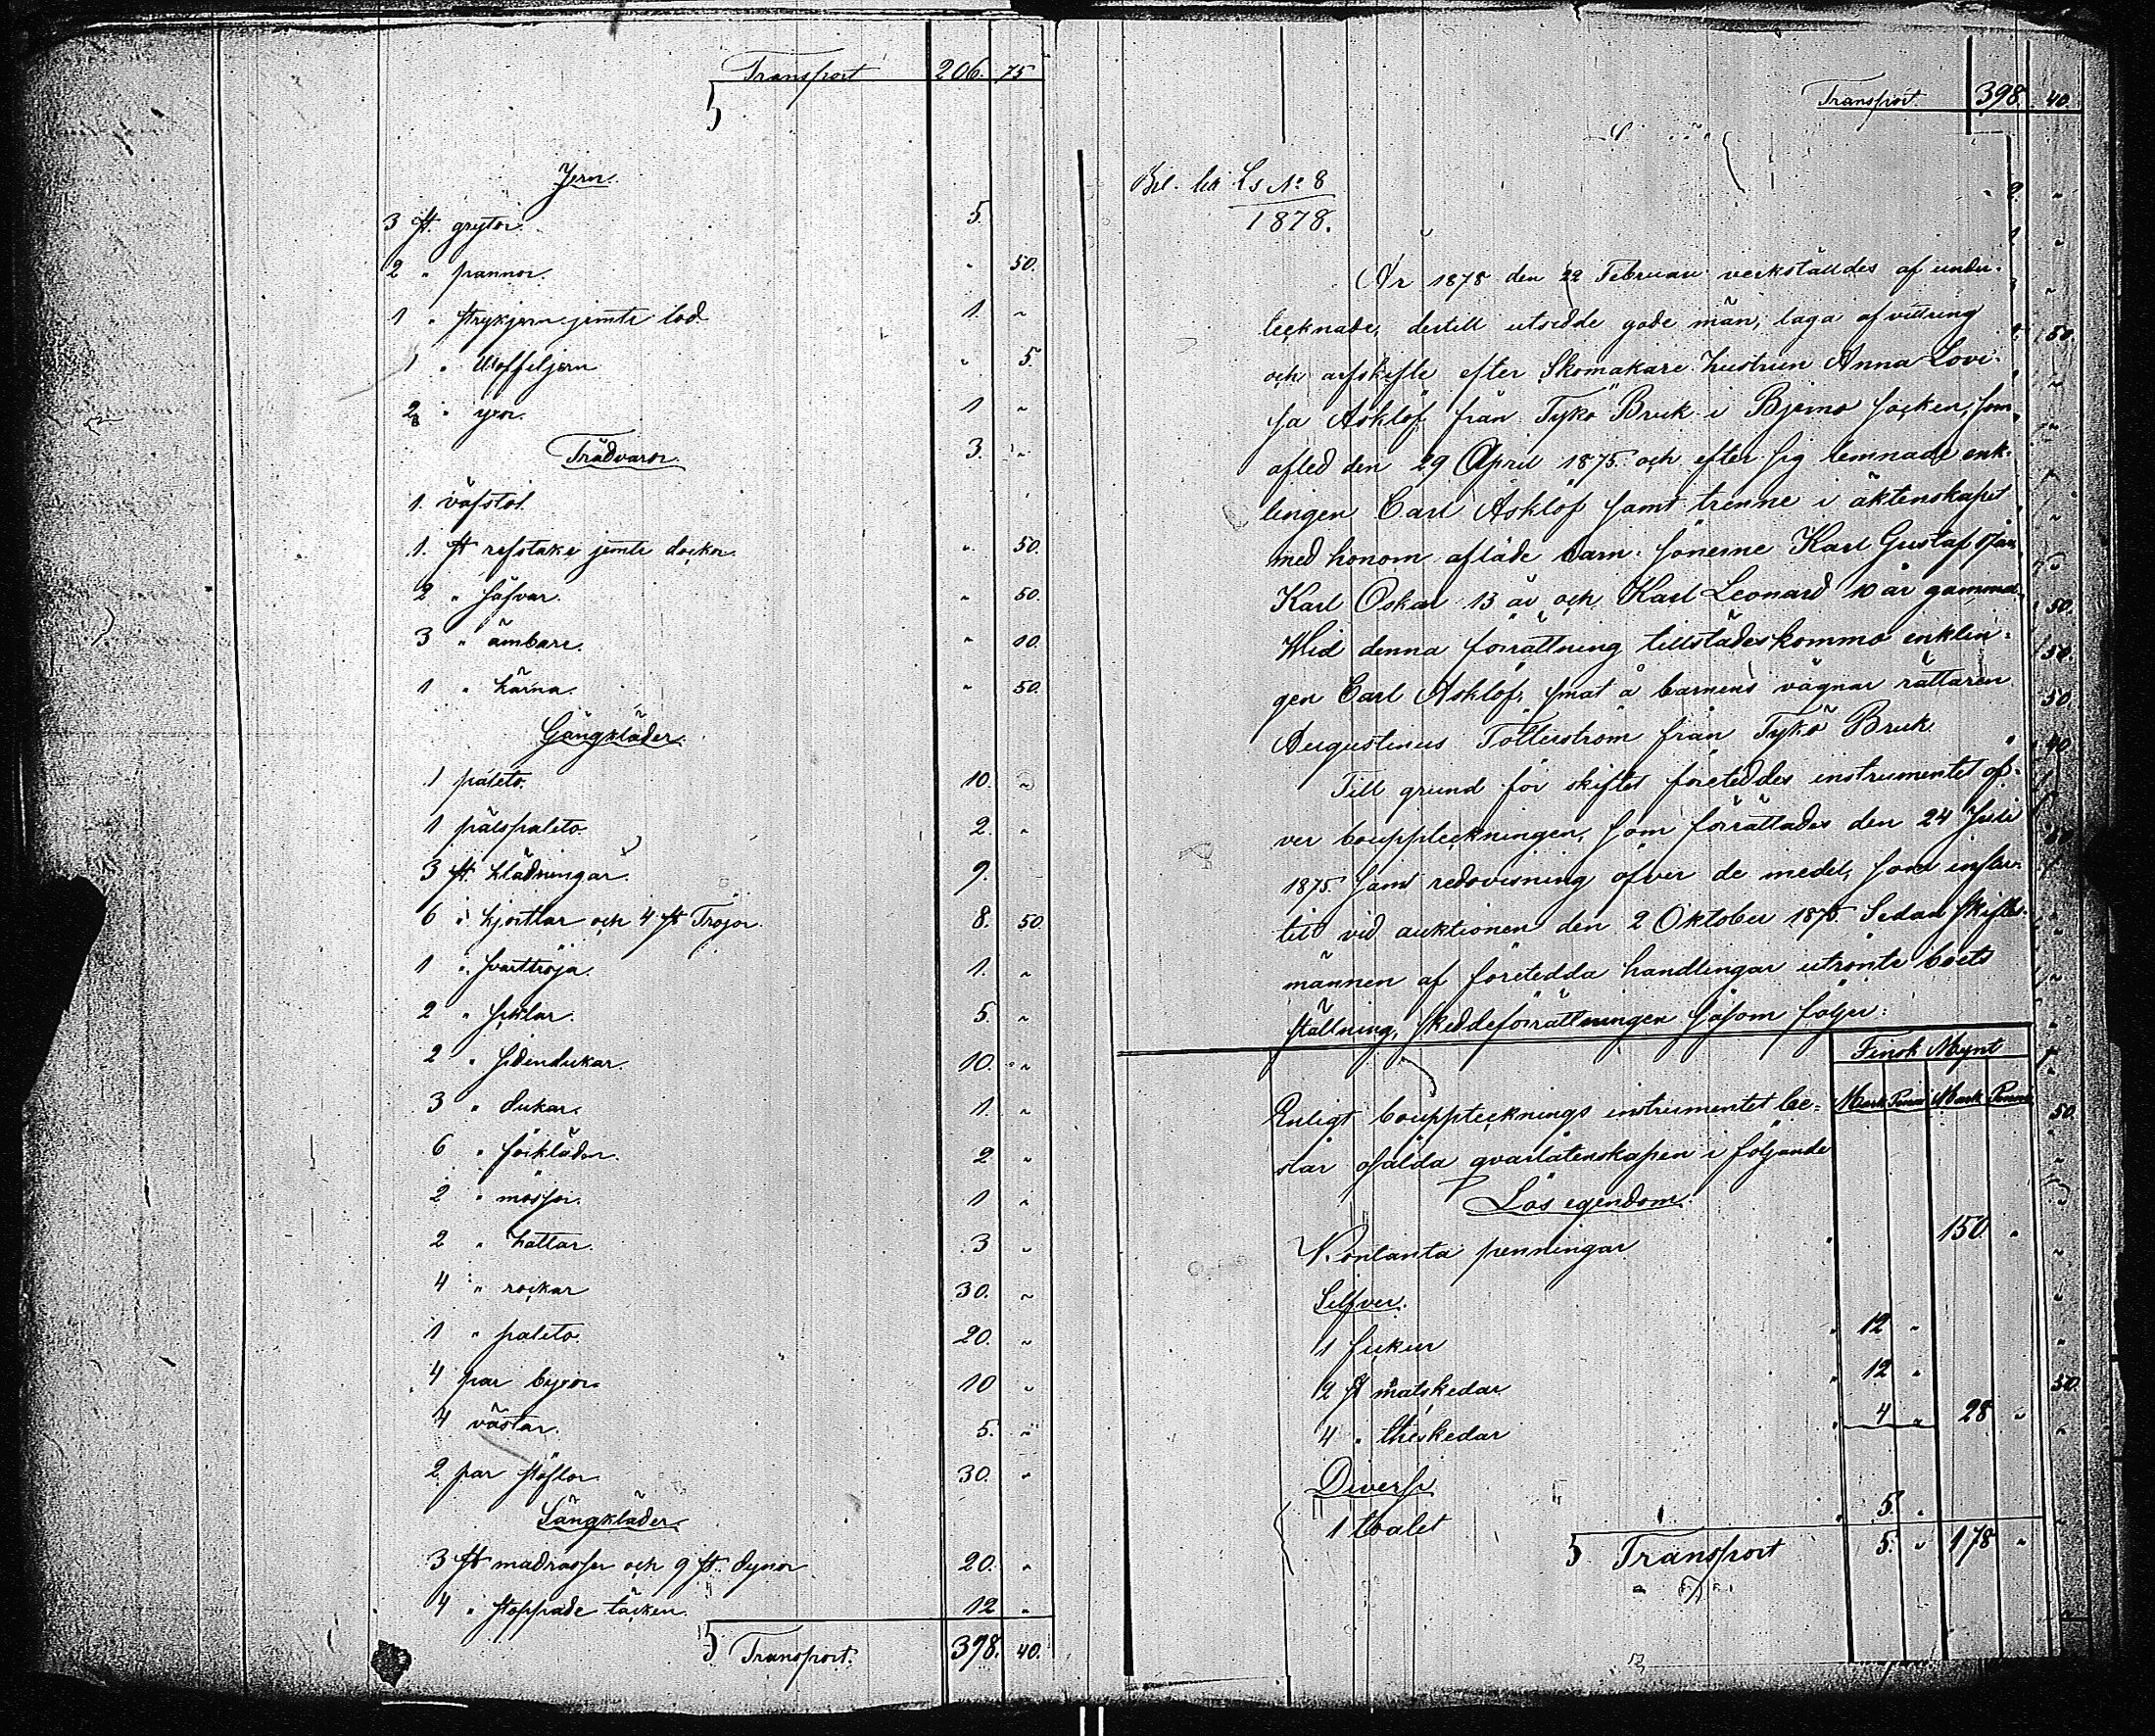 Transport 206. 75
Jern.
3 st. grytor. 5.
2 " pannor. " 50.
1 " strykjern jemte lod. 1. "
1 " Woffeljern " 5.
2 " yxor. 1 "
Trädvaror. 3. "
1. väfstol.
1. st refstake jemte dockor. " 50.
2 " såfvar. " 50.
3 " ämbare. " 10.
1 " kärna. " 50.
Gångkläder.
1 paleto. 10. "
1 pälspaleto. 2. "
3 st. klädningar. 9.
6 " kjortlar och 4 st Tröjor. 8. 50.
1 " svarttröja. 1. "
2 " schlar. 5. "
2 " sidendukar. 10. "
3 " dukar. 1 "
6 " förkläder. 2 "
2 " mössor. 1 "
2 " hattar. 3 "
4 " rockar 30. "
1 " paleto. 20. "
4 par byxor. 10 "
4 västar. 5. "
2 par stöflor. 30. "
Sängkläder.
3 st madrasser och 9 st. dynor 20. "
4 " stoppade täcken. 12 "
Transport. 398. 40.
Transport. 398. 40.
Bil. litt Ls No 8
1878.
År 1878 den 22 Februari verkställdes af under-
tecknade, dertill utsedde gode män, laga afvittring
och arfskifte efter Skomakare hustrun Anna Lovi-
sa Asklöf från Tykö Bruk i Bjerno socken, som
afled den 29 April 1875 och efter sig lemnade enk-
lingen Carl Asklöf samt trenne i äktenskapet
med honom aflade barn: sönerne Karl Gustaf 17 år,
Karl Oskar 13 år och Karl Leonard 10 år gammal.
Wid denna förrättning tillstädeskommo enklin-
gen Carl Asklöf, smat å barnens vägnar rättaren
Augustinus Tötterström från Tykö Bruk.
Till grund för skiftet företeddes instrumentet öf-
ver bouppteckningen, som förrättades den 24 Juli
1875 samt redovisning öfver de medel, som influ-
tit vid auktionen den 2 Oktober 1875. Sedan skiftes-
männen af företedda handlingar utrönte boets
ställning, skedde förrättningen såsom följer:
Finsk Mynt
Mark Penni Mark Penni
Enligt bouppteckningsinstrumentet be-
står osålda qvarlåtenskapen i följande
Lös egendom.
Kontanta penningar " 150 "
Silfver.
1 sucker " 12 "
2 st matskedar " 12 "
4 " theskedar " 4 " 28 "
Diverse
1 toalet " 5. "
Transport 5. " 178 "